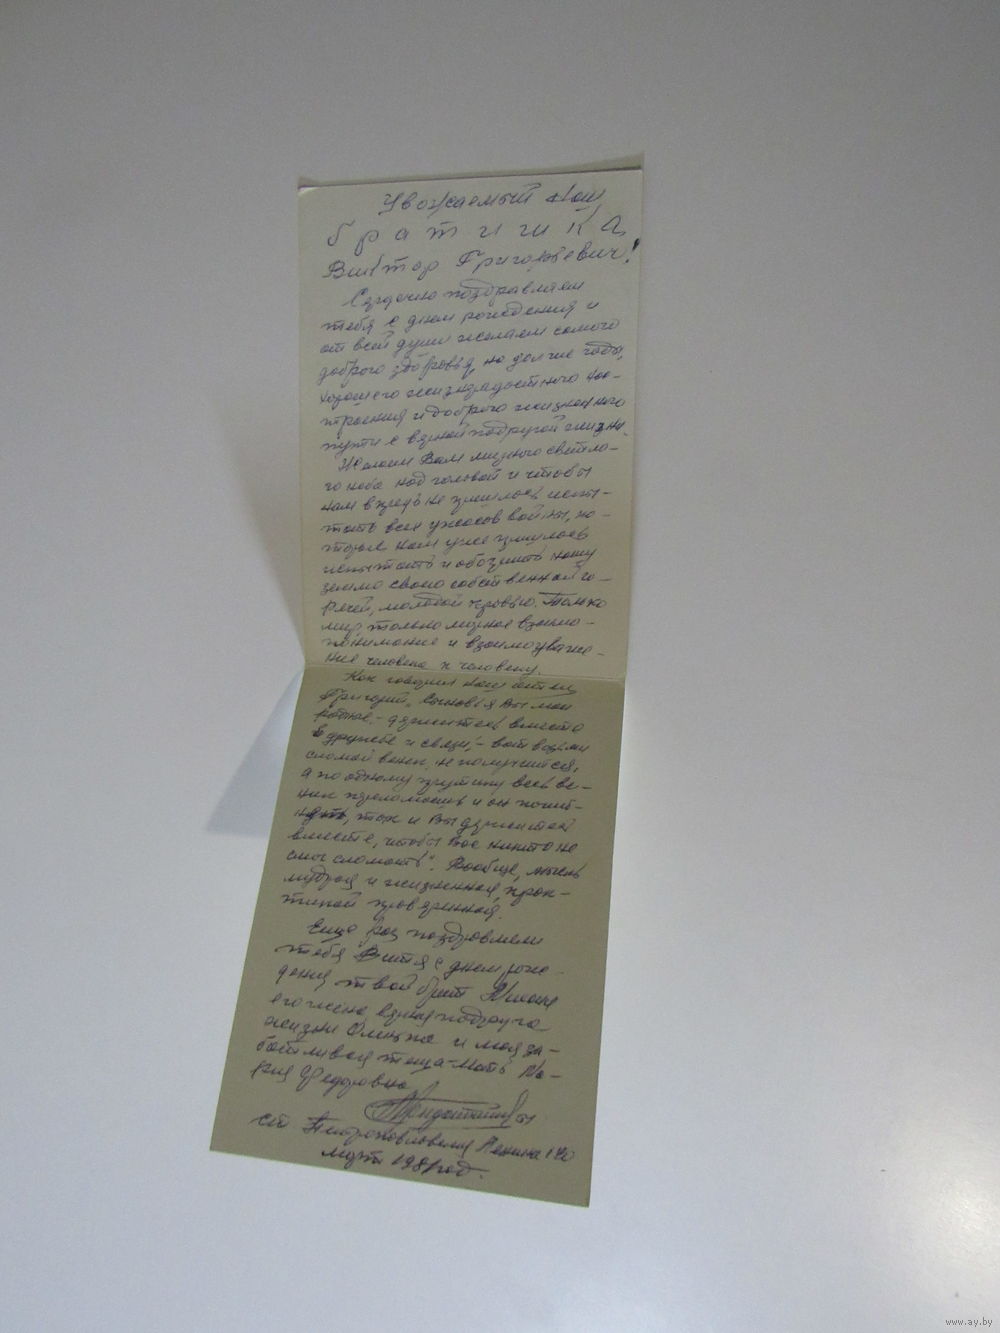 Уважаемый наш
братишка
Виктор Григорьевич!
Сердечно поздравляем
тебя с днем рождения и
от всей души желаем самого
доброго здоровья, на долгие годы,
хорошего жизнерадостного нас-
троения и доброго жизненного
пути с верной подругой жизни.
Желаем Вам мирного светло-
го неба над головой и чтобы
нам впредь не пришлось испы-
тать всех ужасов войны, ко-
торые нам уже пришлось
испытать и обагрить нашу
землю своею собственной го-
рячей, молодой кровью. Только
мир, только мирное взаимо-
понимание и взаимоуваже-
ние человека к человеку.
Как говорил наш отец
Григорий, "Сыновья Вы мои
родные - держитесь вместе
в дружбе и связи, - вот возьми
сломай веник, не получится,
а по одному прутику весь ве-
ник переломаешь и он погиб-
нет, так и Вы держитесь
вместе, чтобы Вас никто не
смог сломать". Вообще, мысль
мудрая и жизненная, прак-
тикой проверенная.
Еще раз поздравляем
тебя Витя с днем рож-
дения твой брат
его жена верная подруга
жизни и моя за-
ботливая теща-мать Ма-
рия Федоровна
ст Петропавловская Ленина 140
март 1981 год.